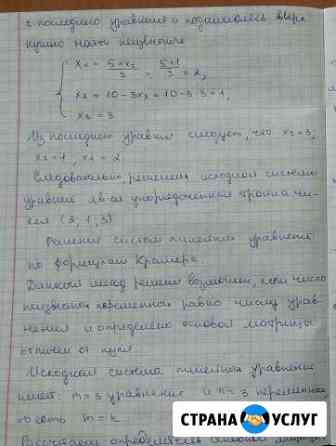 с последнего уравнения и поднимаясь вверх
нужно найти неизвестные
x₁ = (5+x₂)/3 = (5+1)/3 = 2,
x₂ = 10-3x₃ = 10-3·3=1,
x₃ = 3
Из последнего уравнен следует, что x₃=3,
x₂=1, x₁=2
Следовательно, решением исходной системы
уравнен яв-ся упорядоченная тройка чи-
сел (2, 1, 3)
Решение систем линейных уравнен
по формулам Крамера
Данный метод решения возможен, если число
неизвестных переменных равно числу урав-
нений и определено основой матрицы
отличен от нуля
Исходная система линейных уравнений
имеет: m=3 уравнения и n=3 переменных
то есть m=n
Рассчитаем определитель
СТРАНА УСЛУГ